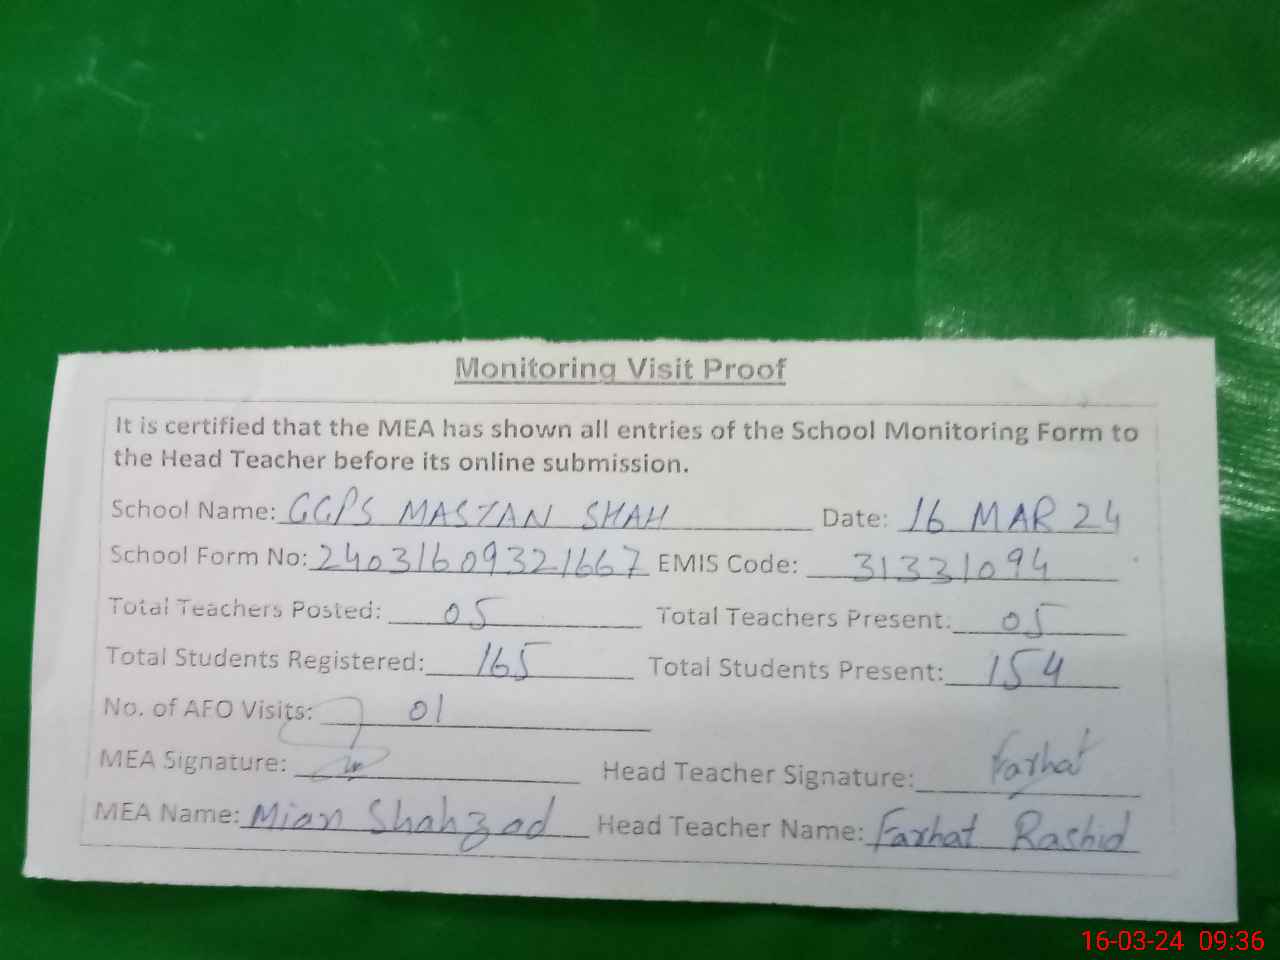 Monitoring Visit Proof
It is certified that the MEA has shown all entries of the School Monitoring Form to
the Head Teacher before its online submission.
School Name: GGPS MASTAN SHAH Date: 16 MAR 24
School Form No: 24031609321667 EMIS Code: 31331094
Total Teachers Posted: 05 Total Teachers Present: 05
Total Students Registered: 165 Total Students Present: 154
No. of AFO Visits: 01
MEA Signature: Head Teacher Signature: Farhat
MEA Name: Mian Shahzad Head Teacher Name: Farhat Rashid
16-03-24 09:36